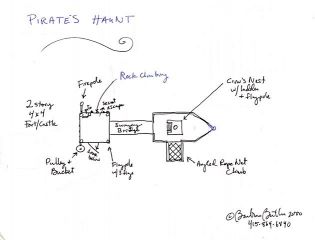 PIRATE'S HAUNT
Firepole
Rock Climbing
Secret
Escape
2 Story
4x4
Fort/Castle
Crow's Nest
w/ ladder
+ Flagpole
Swinging
Bridge
Pulley +
Bucket
Flagpole
w/ Flags
Angled Rope Net
Climb
© Barbara Butler 2000
415-864-6840